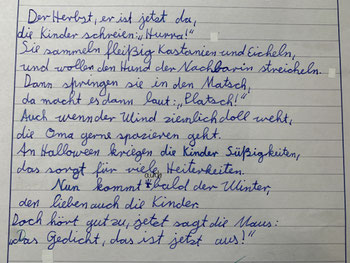 Der Herbst, er ist jetzt da,
die Kinder schreien: „Hurra!"
Sie sammeln fleißig Kastanien und Eicheln,
und wollen den Hund der Nachbarin streicheln.
Dann springen sie in den Matsch,
da macht es dann laut: „Platsch!"
Auch wenn der Wind ziemlich doll weht,
die Oma gerne spazieren geht.
An Halloween kriegen die Kinder Süßigkeiten,
das sorgt für viele Heiterkeiten.
Nun kommt auch bald der Winter,
den lieben auch die Kinder.
Doch hört gut zu, jetzt sagt die Maus:
„Das Gedicht, das ist jetzt aus!"